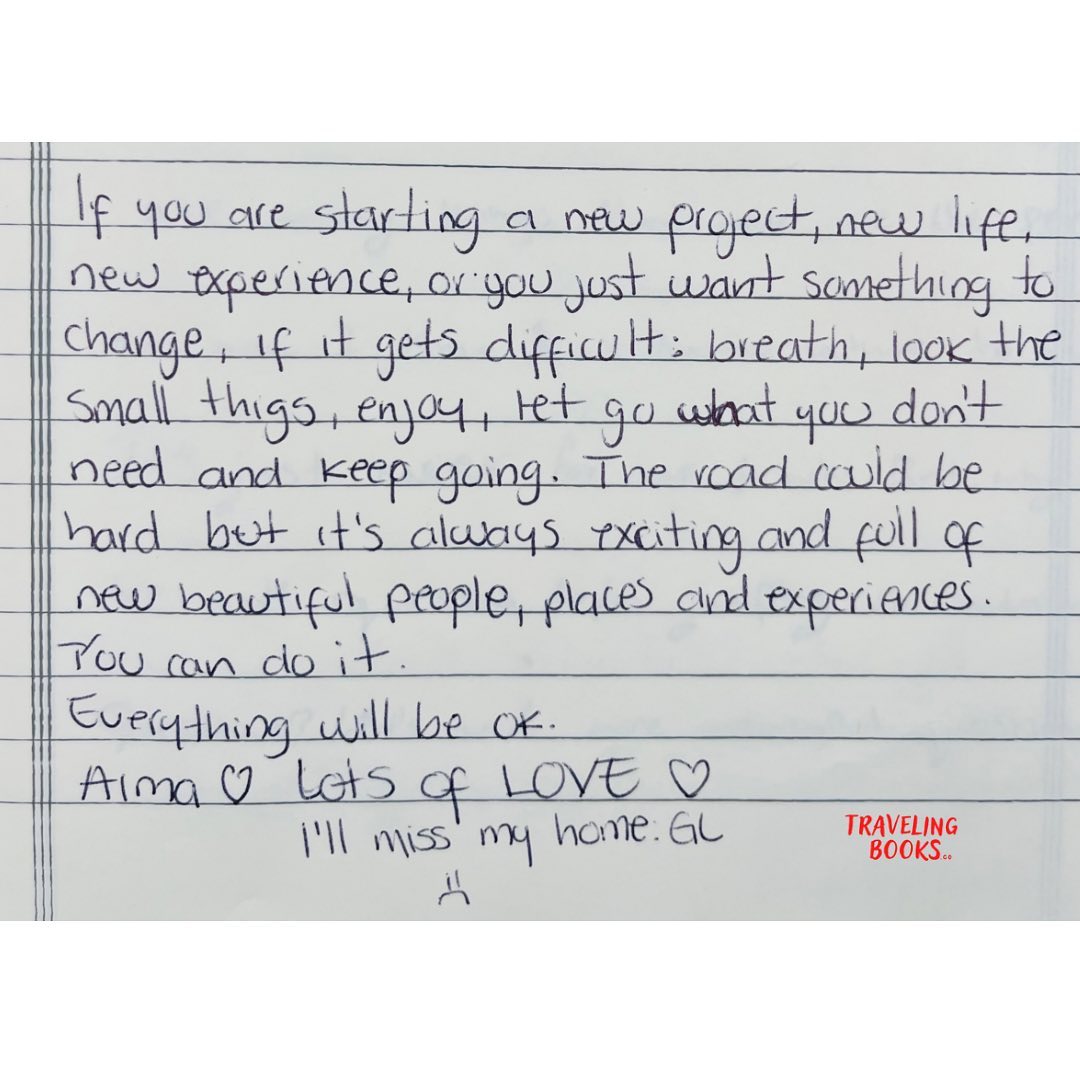 If you are starting a new project, new life,
new experience, or you just want something to
change, if it gets difficult: breath, look the
small thigs, enjoy, let go what you don't
need and keep going. The road could be
hard but it's always exciting and full of
new beautiful people, places and experiences.
You can do it.
Everything will be ok.
Alma ♡ Lots of LOVE ♡
I'll miss my home: GL
TRAVELING
BOOKS..